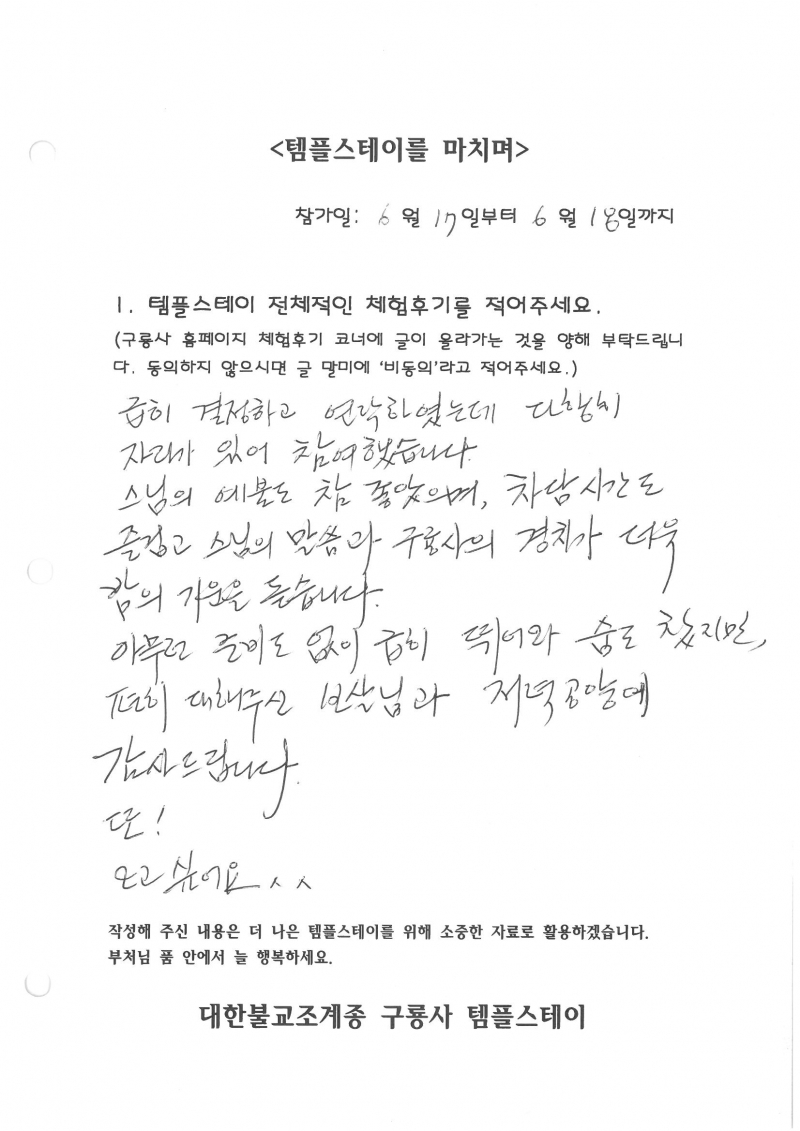 <템플스테이를 마치며>
참가일: 6 월 17일부터 6 월 18일까지
1. 템플스테이 전체적인 체험후기를 적어주세요.
(구룡사 홈페이지 체험후기 코너에 글이 올라가는 것을 양해 부탁드립니
다. 동의하지 않으시면 글 말미에 '비동의'라고 적어주세요.)
급히 결정하고 연락하였는데 다행히
자리가 있어 참여했습니다.
스님의 예불도 참 좋았으며, 차담시간도
즐겁고 스님의 말씀과 구룡사의 경치가 더욱
기운을 돋습니다.
아무런 준비도 없이 급히 뛰어와 숨도 찼지만,
편히 대해주신 보살님과 저녁공양에
감사드립니다.
또!
오고싶어요^^
작성해 주신 내용은 더 나은 템플스테이를 위해 소중한 자료로 활용하겠습니다.
부처님 품 안에서 늘 행복하세요.
대한불교조계종 구룡사 템플스테이